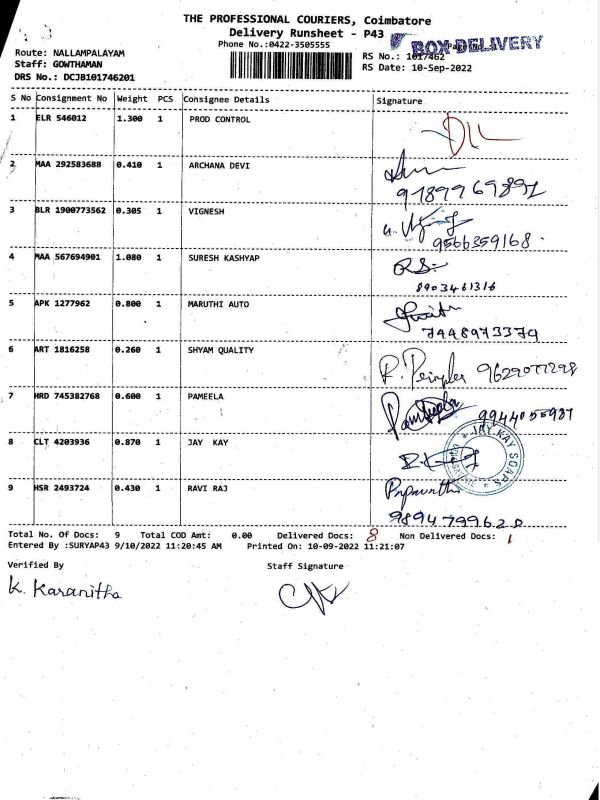 THE PROFESSIONAL COURIERS, Coimbatore
Delivery Runsheet - P43
Phone No.:0422-3505555
BOX DELIVERY
Route: NALLAMPALAYAM
Staff: GOWTHAMAN
DRS No.: DCJB101746201
RS No.: 1017462
RS Date: 10-Sep-2022
S No Consignment No Weight PCS Consignee Details Signature
1 ELR 546012 1.300 1 PROD CONTROL
2 MAA 292583688 0.410 1 ARCHANA DEVI
9789969892
3 BLR 1900773562 0.305 1 VIGNESH
9566359168
4 MAA 567694901 1.080 1 SURESH KASHYAP RS
8903461316
5 APK 1277962 0.800 1 MARUTHI AUTO
7448973379
6 ART 1816258 0.260 1 SHYAM QUALITY
9629077298
7 HRD 745382768 0.600 1 PAMEELA
9944055987
8 CLT 4203936 0.870 1 JAY KAY
JAY KAY SOAPS
9 HSR 2493724 0.430 1 RAVI RAJ
9894799628
Total No. Of Docs: 9 Total COD Amt: 0.00 Delivered Docs: 8 Non Delivered Docs: 1
Entered By :SURYAP43 9/10/2022 11:20:45 AM Printed On: 10-09-2022 11:21:07
Verified By Staff Signature
K. Karanitha